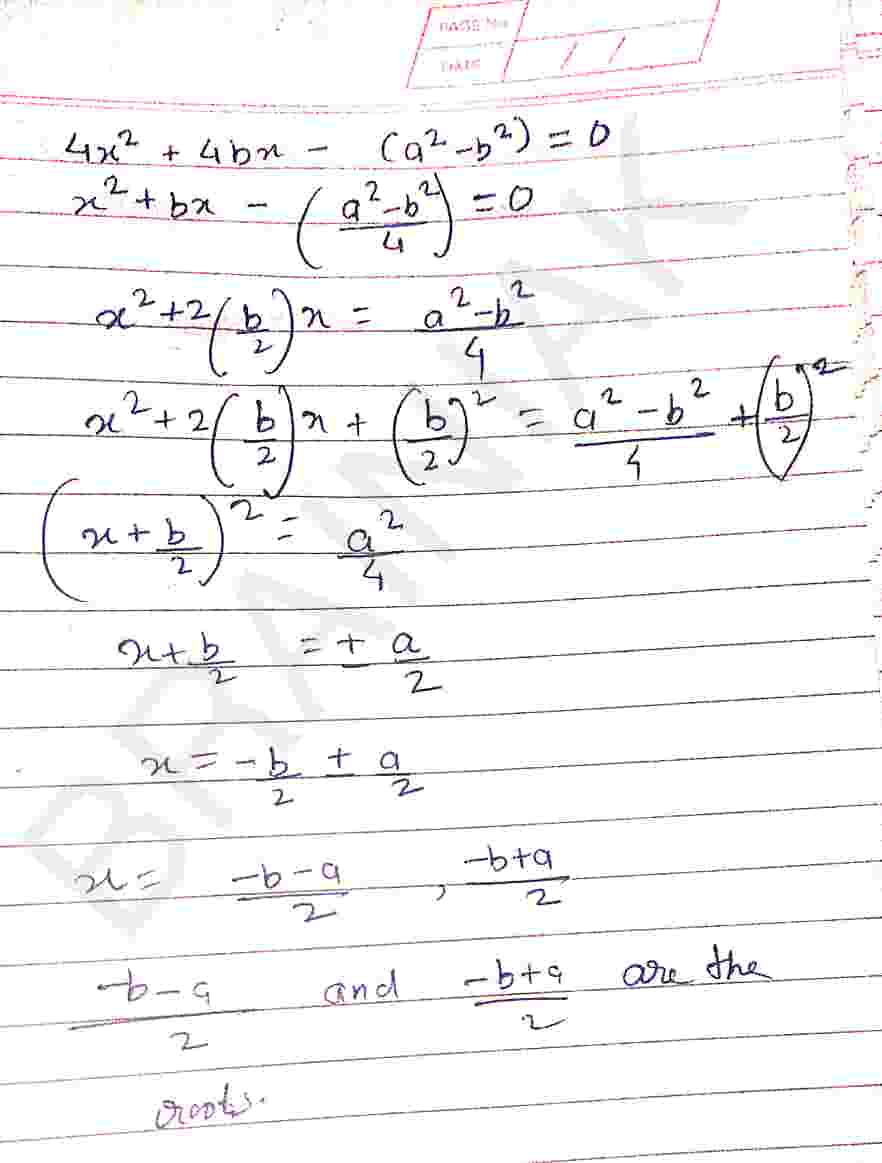 PAGE No
DATE / /
4x² + 4bx - (a² - b²) = 0
x² + bx - ((a² - b²)/4) = 0
x² + 2(b/2)x = (a² - b²)/4
x² + 2(b/2)x + (b/2)² = (a² - b²)/4 + (b/2)²
(x + b/2)² = a²/4
x + b/2 = ± a/2
x = -b/2 ± a/2
x = (-b - a)/2 , (-b + a)/2
(-b - a)/2 and (-b + a)/2 are the
roots.
BRAINYAK